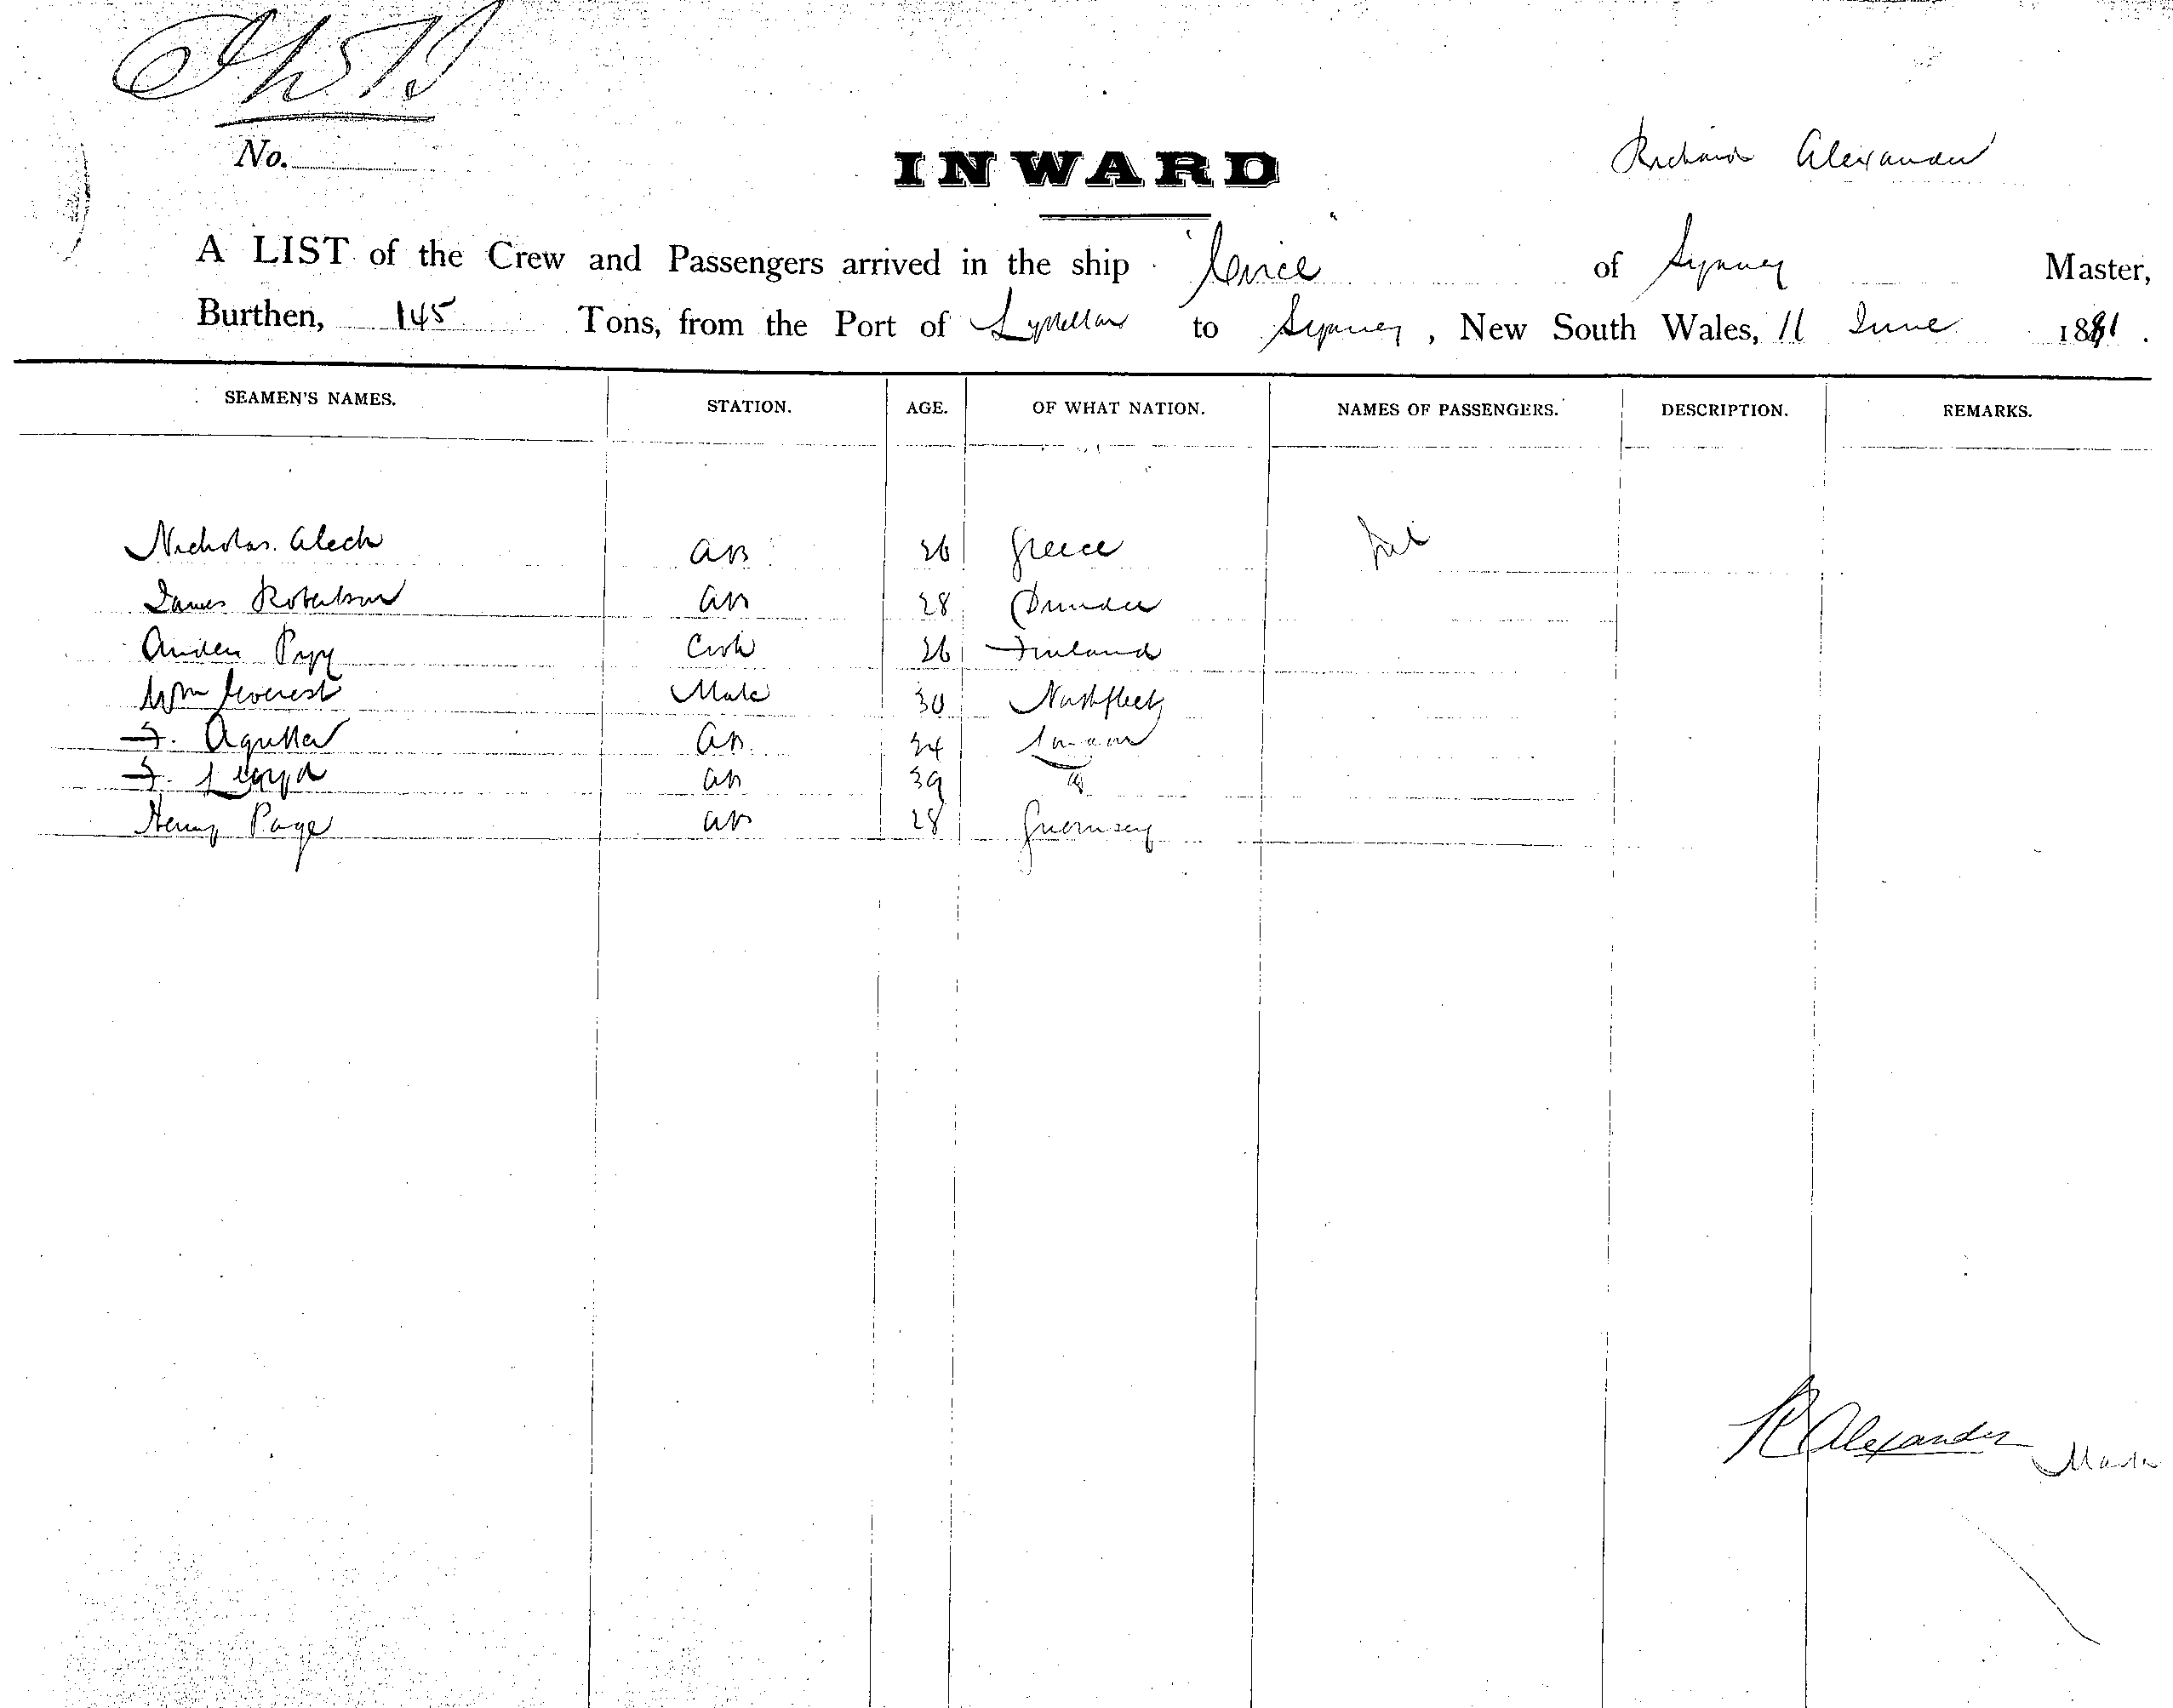 No.
INWARD
Richard Alexander
A LIST of the Crew and Passengers arrived in the ship of Sydney Master,
Burthen, 145 Tons, from the Port of Lyttelton to Sydney, New South Wales, 11 June 1881.
SEAMEN'S NAMES. STATION. AGE. OF WHAT NATION. NAMES OF PASSENGERS. DESCRIPTION. REMARKS.
Nicholas Aleck AB 26 Greece Nil
James Robertson AB 28 Dundee
Cook 26 Finland
Wm Everest Mate 30 Northfleet
F. AB 24 London
F. Lloyd AB 39 "
Henry Page AB 28 Guernsey
R Alexander Master